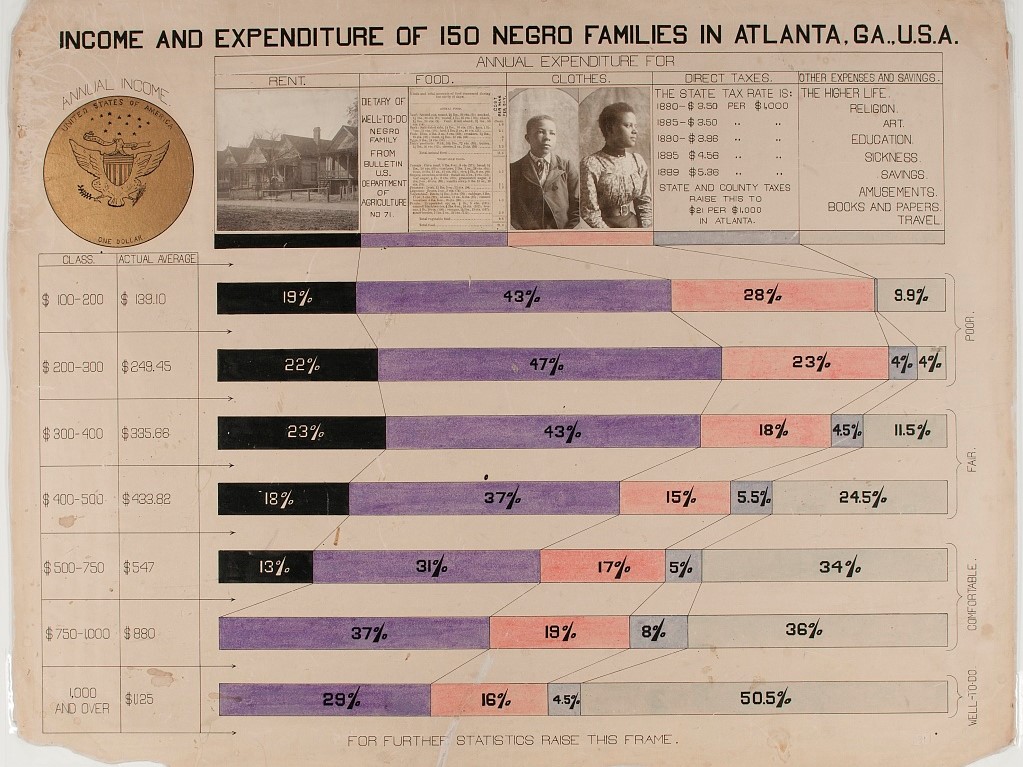 INCOME AND EXPENDITURE OF 150 NEGRO FAMILIES IN ATLANTA, GA., U.S.A.
ANNUAL EXPENDITURE FOR
RENT. FOOD. CLOTHES. DIRECT TAXES. OTHER EXPENSES AND SAVINGS.
ANNUAL INCOME.
UNITED STATES OF AMERICA
ONE DOLLAR
DIETARY OF
WELL-TO-DO
NEGRO
FAMILY
FROM
BULLETIN
U.S.
DEPARTMENT
OF
AGRICULTURE
NO 71.
THE STATE TAX RATE IS:
1880-$3.50 PER $1,000
1885-$3.50 " "
1890-$3.96 " "
1895 $4.56 " "
1899 $5.36 " "
STATE AND COUNTY TAXES
RAISE THIS TO
$21 PER $1,000
IN ATLANTA.
THE HIGHER LIFE.
RELIGION.
ART.
EDUCATION.
SICKNESS.
SAVINGS.
AMUSEMENTS.
BOOKS AND PAPERS.
TRAVEL.
CLASS. ACTUAL AVERAGE.
$ 100-200 $ 139.10 19% 43% 28% 9.9%
$ 200-300 $249.45 22% 47% 23% 4% 4%
POOR.
$300-400 $335.66 23% 43% 18% 4.5% 11.5%
$400-500 $433.82 18% 37% 15% 5.5% 24.5%
FAIR.
$500-750 $547 13% 31% 17% 5% 34%
$750-1,000 $880 37% 19% 8% 36%
COMFORTABLE.
1,000
AND OVER $1,125 29% 16% 4.5% 50.5%
WELL-TO-DO
FOR FURTHER STATISTICS RAISE THIS FRAME.